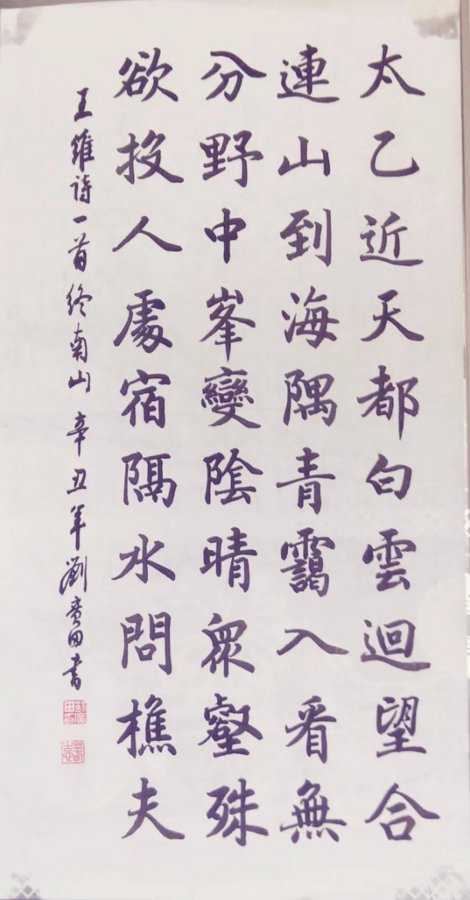 太乙近天都白雲迴望合
連山到海隅青靄入看無
分野中峯變陰晴眾壑殊
欲投人處宿隔水問樵夫
王維詩一首終南山 辛丑年劉廣田書